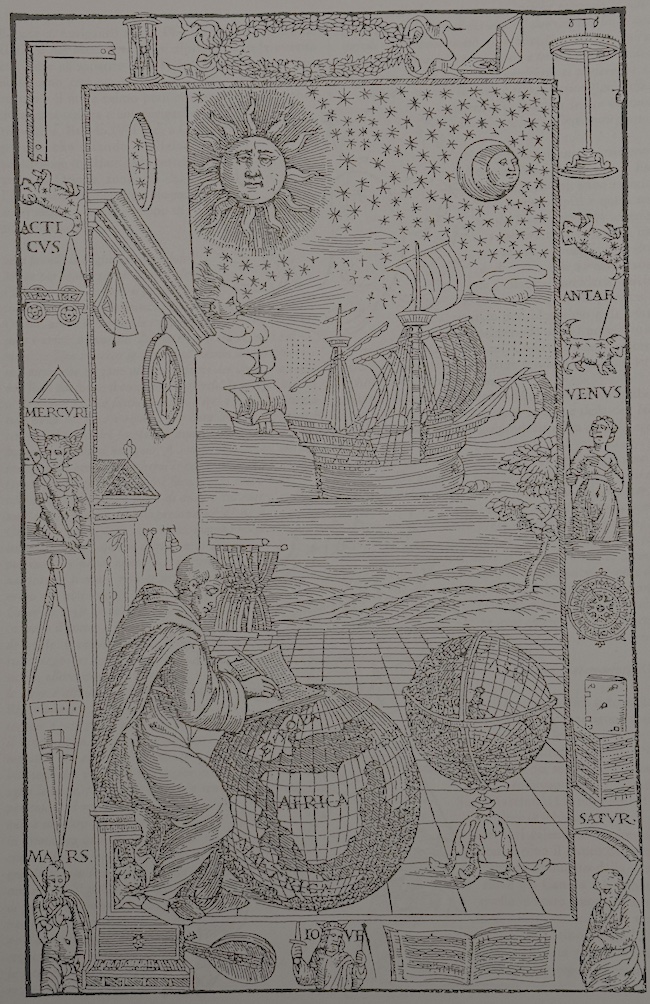 ACTI
CVS
ANTAR
MERCVRI
VENVS
AFRICA
SATVR.
MARS.
IO VE